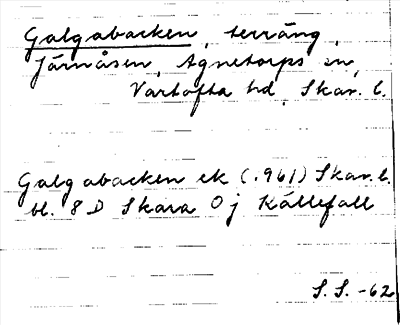 Galgabacken, terräng,
Järnåsen, Agnetorps sn,
Vartofta hd, Skar. l.
Galgabacken ek (.961) Skar. l.
bl. 8 D Skara 0 j Kållefall
S. S. -62